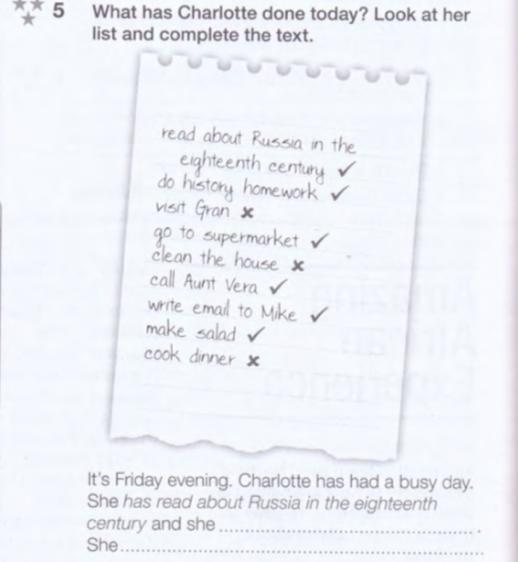 5 What has Charlotte done today? Look at her
list and complete the text.
read about Russia in the
eighteenth century ✓
do history homework ✓
visit Gran ✗
go to supermarket ✓
clean the house ✗
call Aunt Vera ✓
write email to Mike ✓
make salad ✓
cook dinner ✗
It's Friday evening. Charlotte has had a busy day.
She has read about Russia in the eighteenth
century and she ........................................ .
She........................................